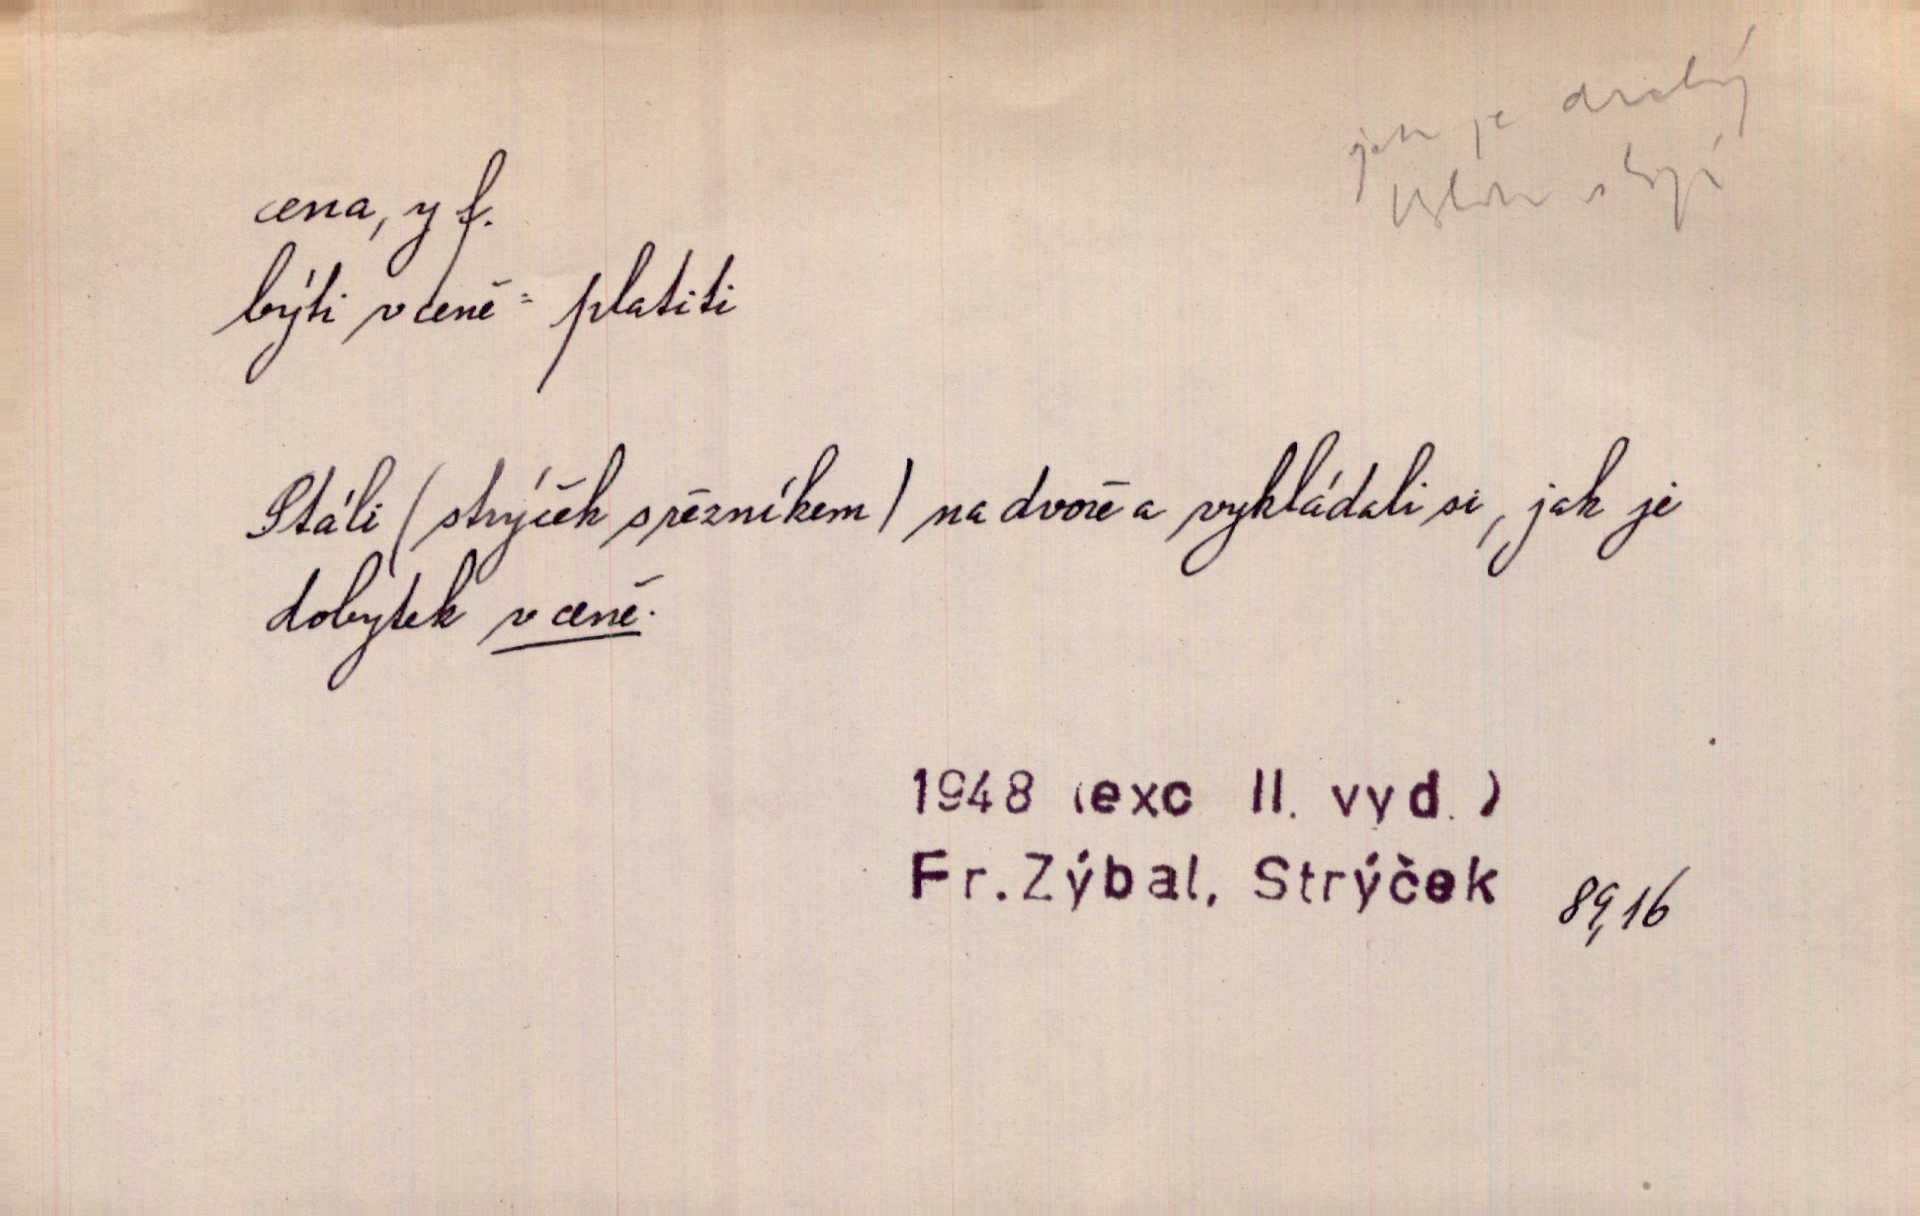 jak je drahý
cena, y f.
býti v ceně = platiti
Stáli (strýček s řezníkem) na dvoře a vykládali si, jak je
dobytek v ceně.
1948 (exc II. vyd.)
Fr. Zýbal, Strýček 89,16